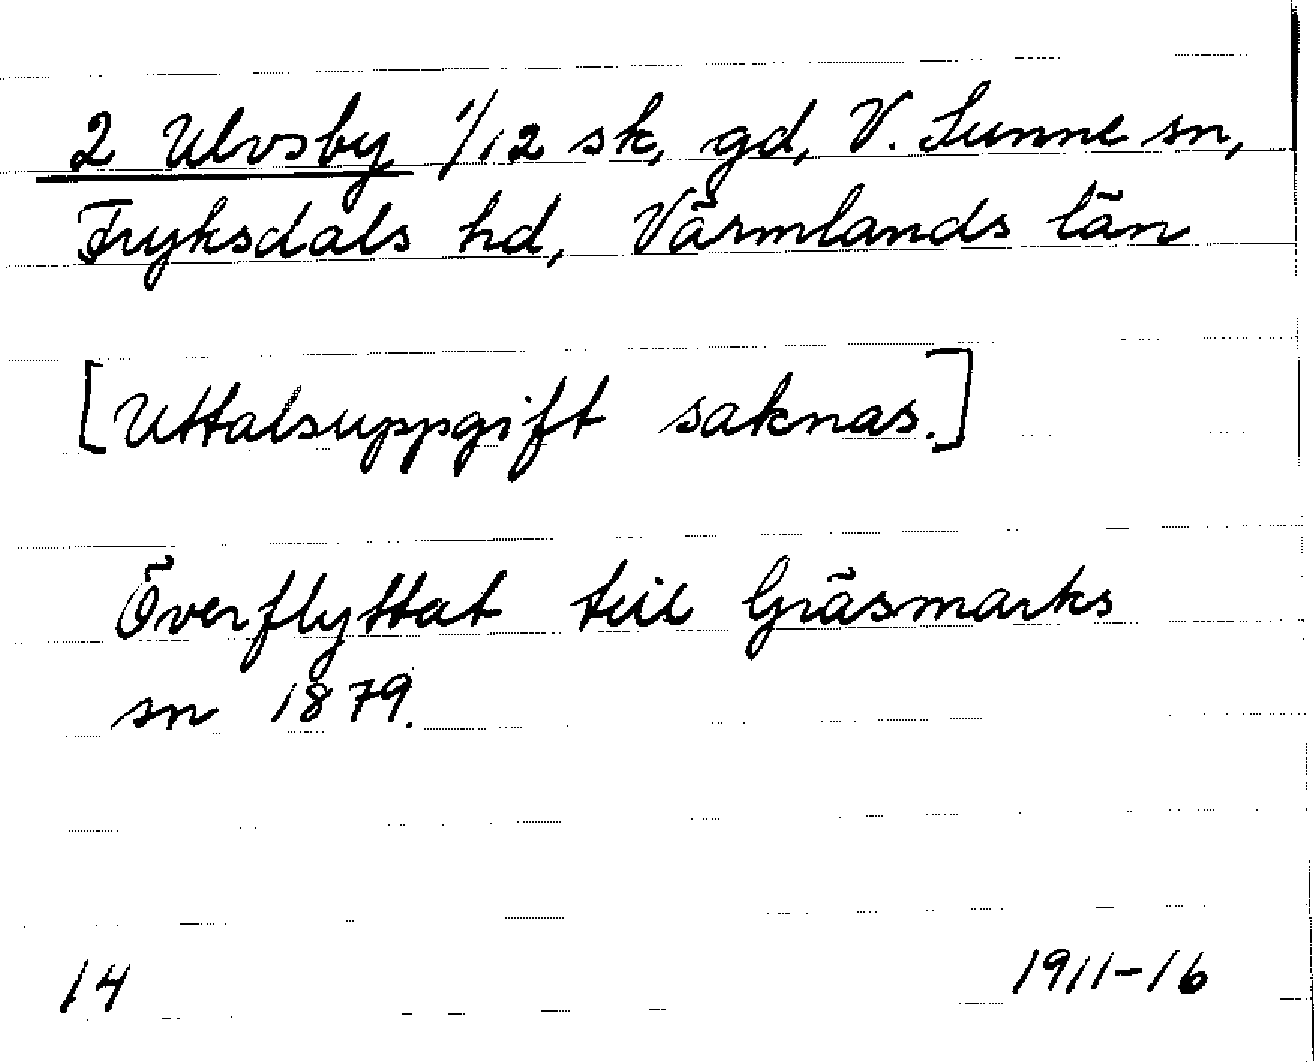 2 Ulvsby 1/12 sk, gd, V. Sunne sn,
Fryksdals hd, Värmlands län
[Uttalsuppgift saknas.]
Överflyttat till Gräsmarks
sn 1879.
14
1911-16